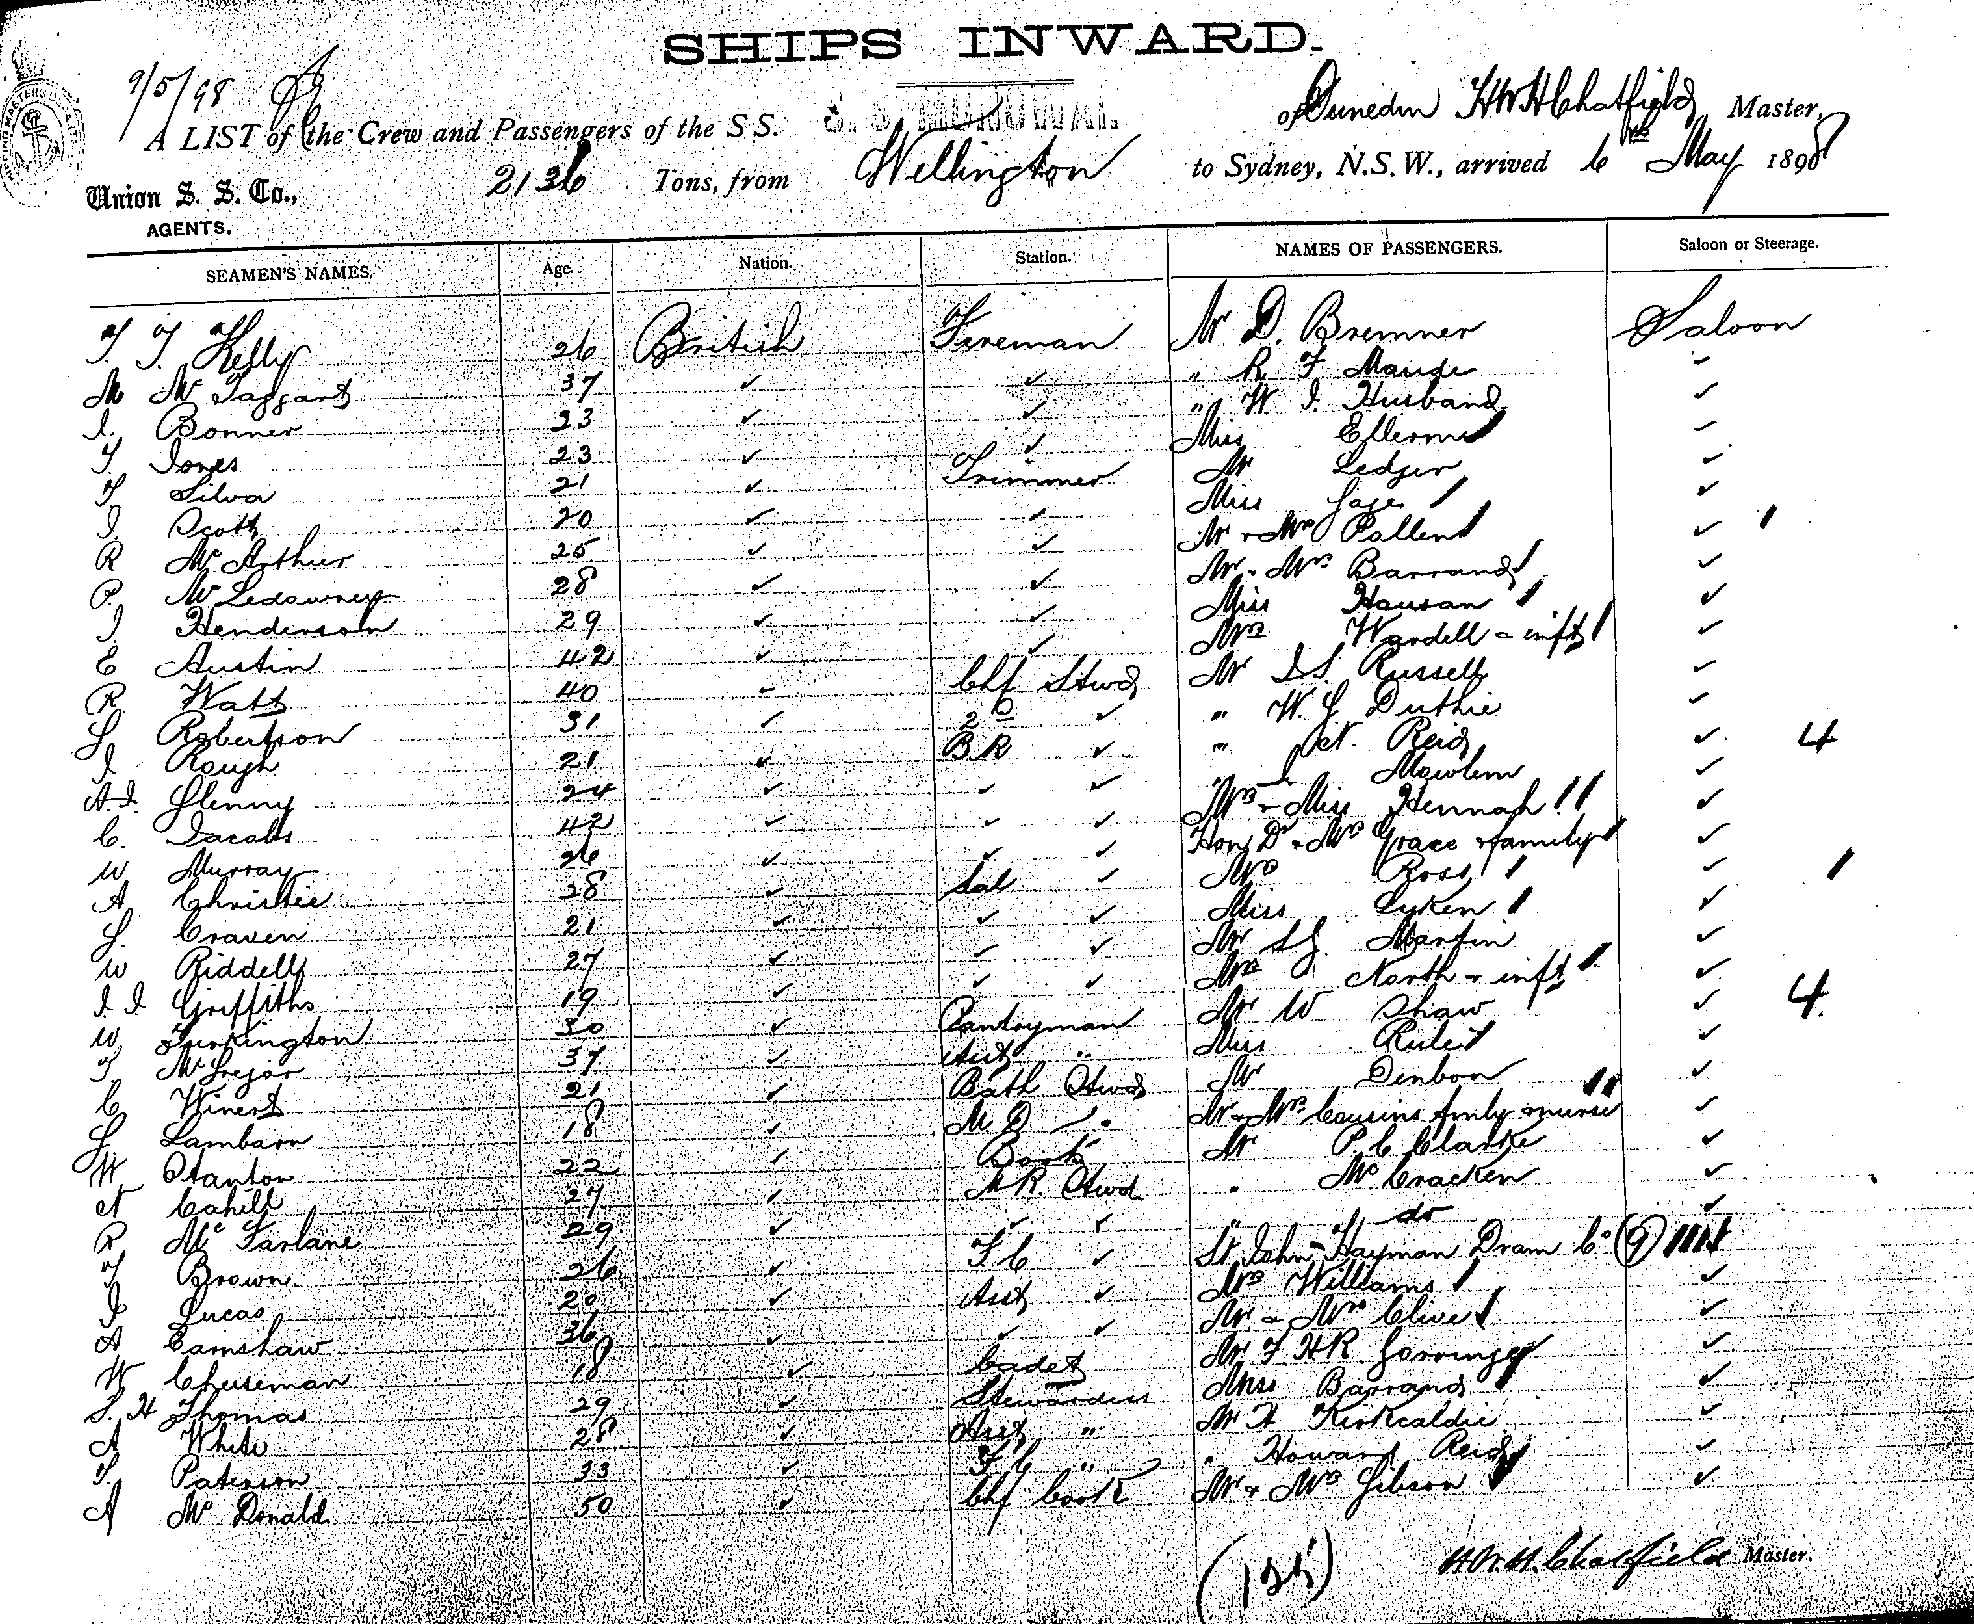 SHIPS INWARD.
9/5/98
A LIST of the Crew and Passengers of the S S. S. S. MONOWAI. of Dunedin H W H Chatfield Master,
Union S. S. Co., 2136 Tons, from Wellington to Sydney, N.S.W., arrived 6th May 1898
AGENTS.
SEAMEN'S NAMES. Age. Nation. Station. NAMES OF PASSENGERS. Saloon or Steerage.
T T. Kelly 26 British Fireman Mr D. Bremner Saloon
M McTaggart 37 ✓ ✓ " R F Maude ✓
J. Bonner 23 ✓ ✓ " W J. Husband ✓
T Jones 23 ✓ ✓ Miss ✓
T Silva 21 ✓ Trimmer Mr Ledger ✓
J. Scott 20 ✓ ✓ Miss ✓
R McArthur 25 ✓ ✓ Mr + Mrs ✓
P. 28 ✓ ✓ Mr + Mrs Barrand ✓
J Henderson 29 ✓ ✓ Miss ✓
E Austin 42 ✓ ✓ Mrs Wardell + inft ✓
R. Watt 40 ✓ Chf Stwd Mr J S. Russell ✓
Robertson 31 ✓ 2D ✓ " W. G Duthie ✓
J Rough 21 ✓ B R ✓ " Reid ✓ 4
A J. Glenny 24 ✓ ✓ ✓ " J Mowlem ✓
C. Jacobs 42 ✓ ✓ ✓ Mrs + Miss Hennah ✓
W Murray 26 ✓ ✓ ✓ Hon Dr + Mrs Grace + family ✓
A Christie 28 ✓ Sal ✓ Mrs Ross ✓
Craven 21 ✓ ✓ ✓ Miss Lyken ✓
W Riddell 27 ✓ ✓ ✓ Mr Martin ✓
J J Griffiths 19 ✓ ✓ ✓ Mrs North + inft ✓
W Turkington 30 ✓ Pantryman Mr W Shaw ✓ 4
T McGregor 37 ✓ Asst " Miss ✓
C Winert 21 ✓ Bath Stwd Mr Denbon ✓
Lambarn 18 ✓ M D " Mr + Mrs Cousins fmly + nurse ✓
W Stanton 22 ✓ Boots Mr P. C Clarke ✓
N Cahill 27 ✓ S R. Stwd " McCracken ✓
R McFarlane 29 ✓ ✓ ✓ " do ✓
T Brown 26 ✓ F C ✓ St John-Hayman Dram Co (9)
J Lucas 20 ✓ Asst ✓ Mrs Williams ✓
A Earnshaw 36 ✓ ✓ ✓ Mr + Mrs Clive ✓
W Cheeseman 18 ✓ Cadet Mr F H R Gorringe ✓
S. H Thomas 29 ✓ Stewardess Miss Barrand ✓
A White 28 ✓ Asst " Mr H Kirkcaldie ✓
Paterson 33 ✓ F C " " Howard Reid ✓
A McDonald 50 ✓ Chf Cook Mr + Mrs Gibson ✓
H. W. H. Chatfield Master.